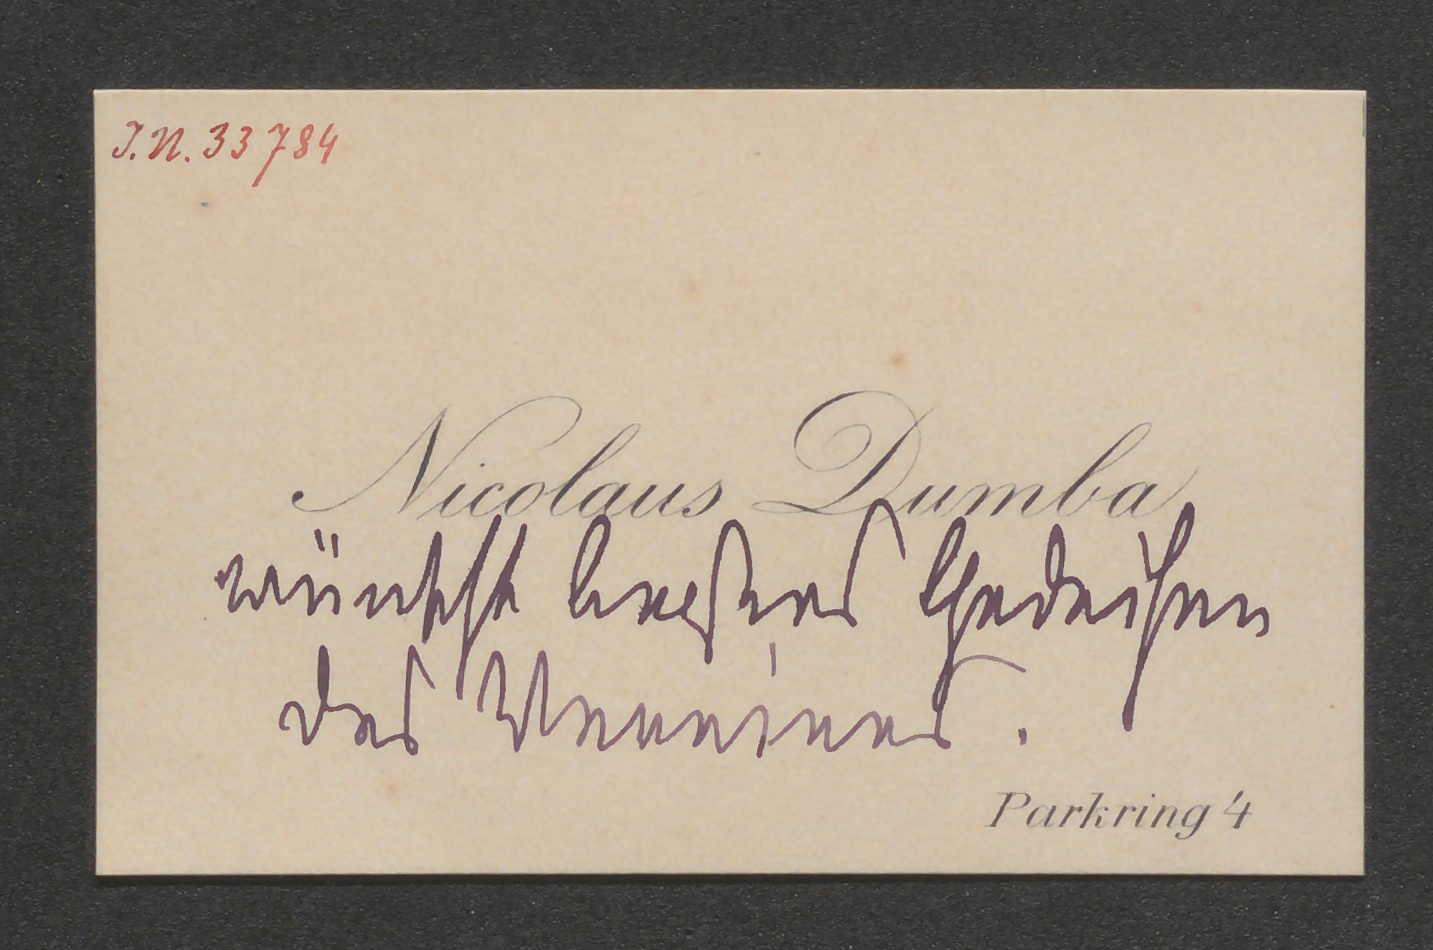 J.N. 33784
Nicolaus Dumba
wünscht bestes Gedeihen
des Vereines.
Parkring 4